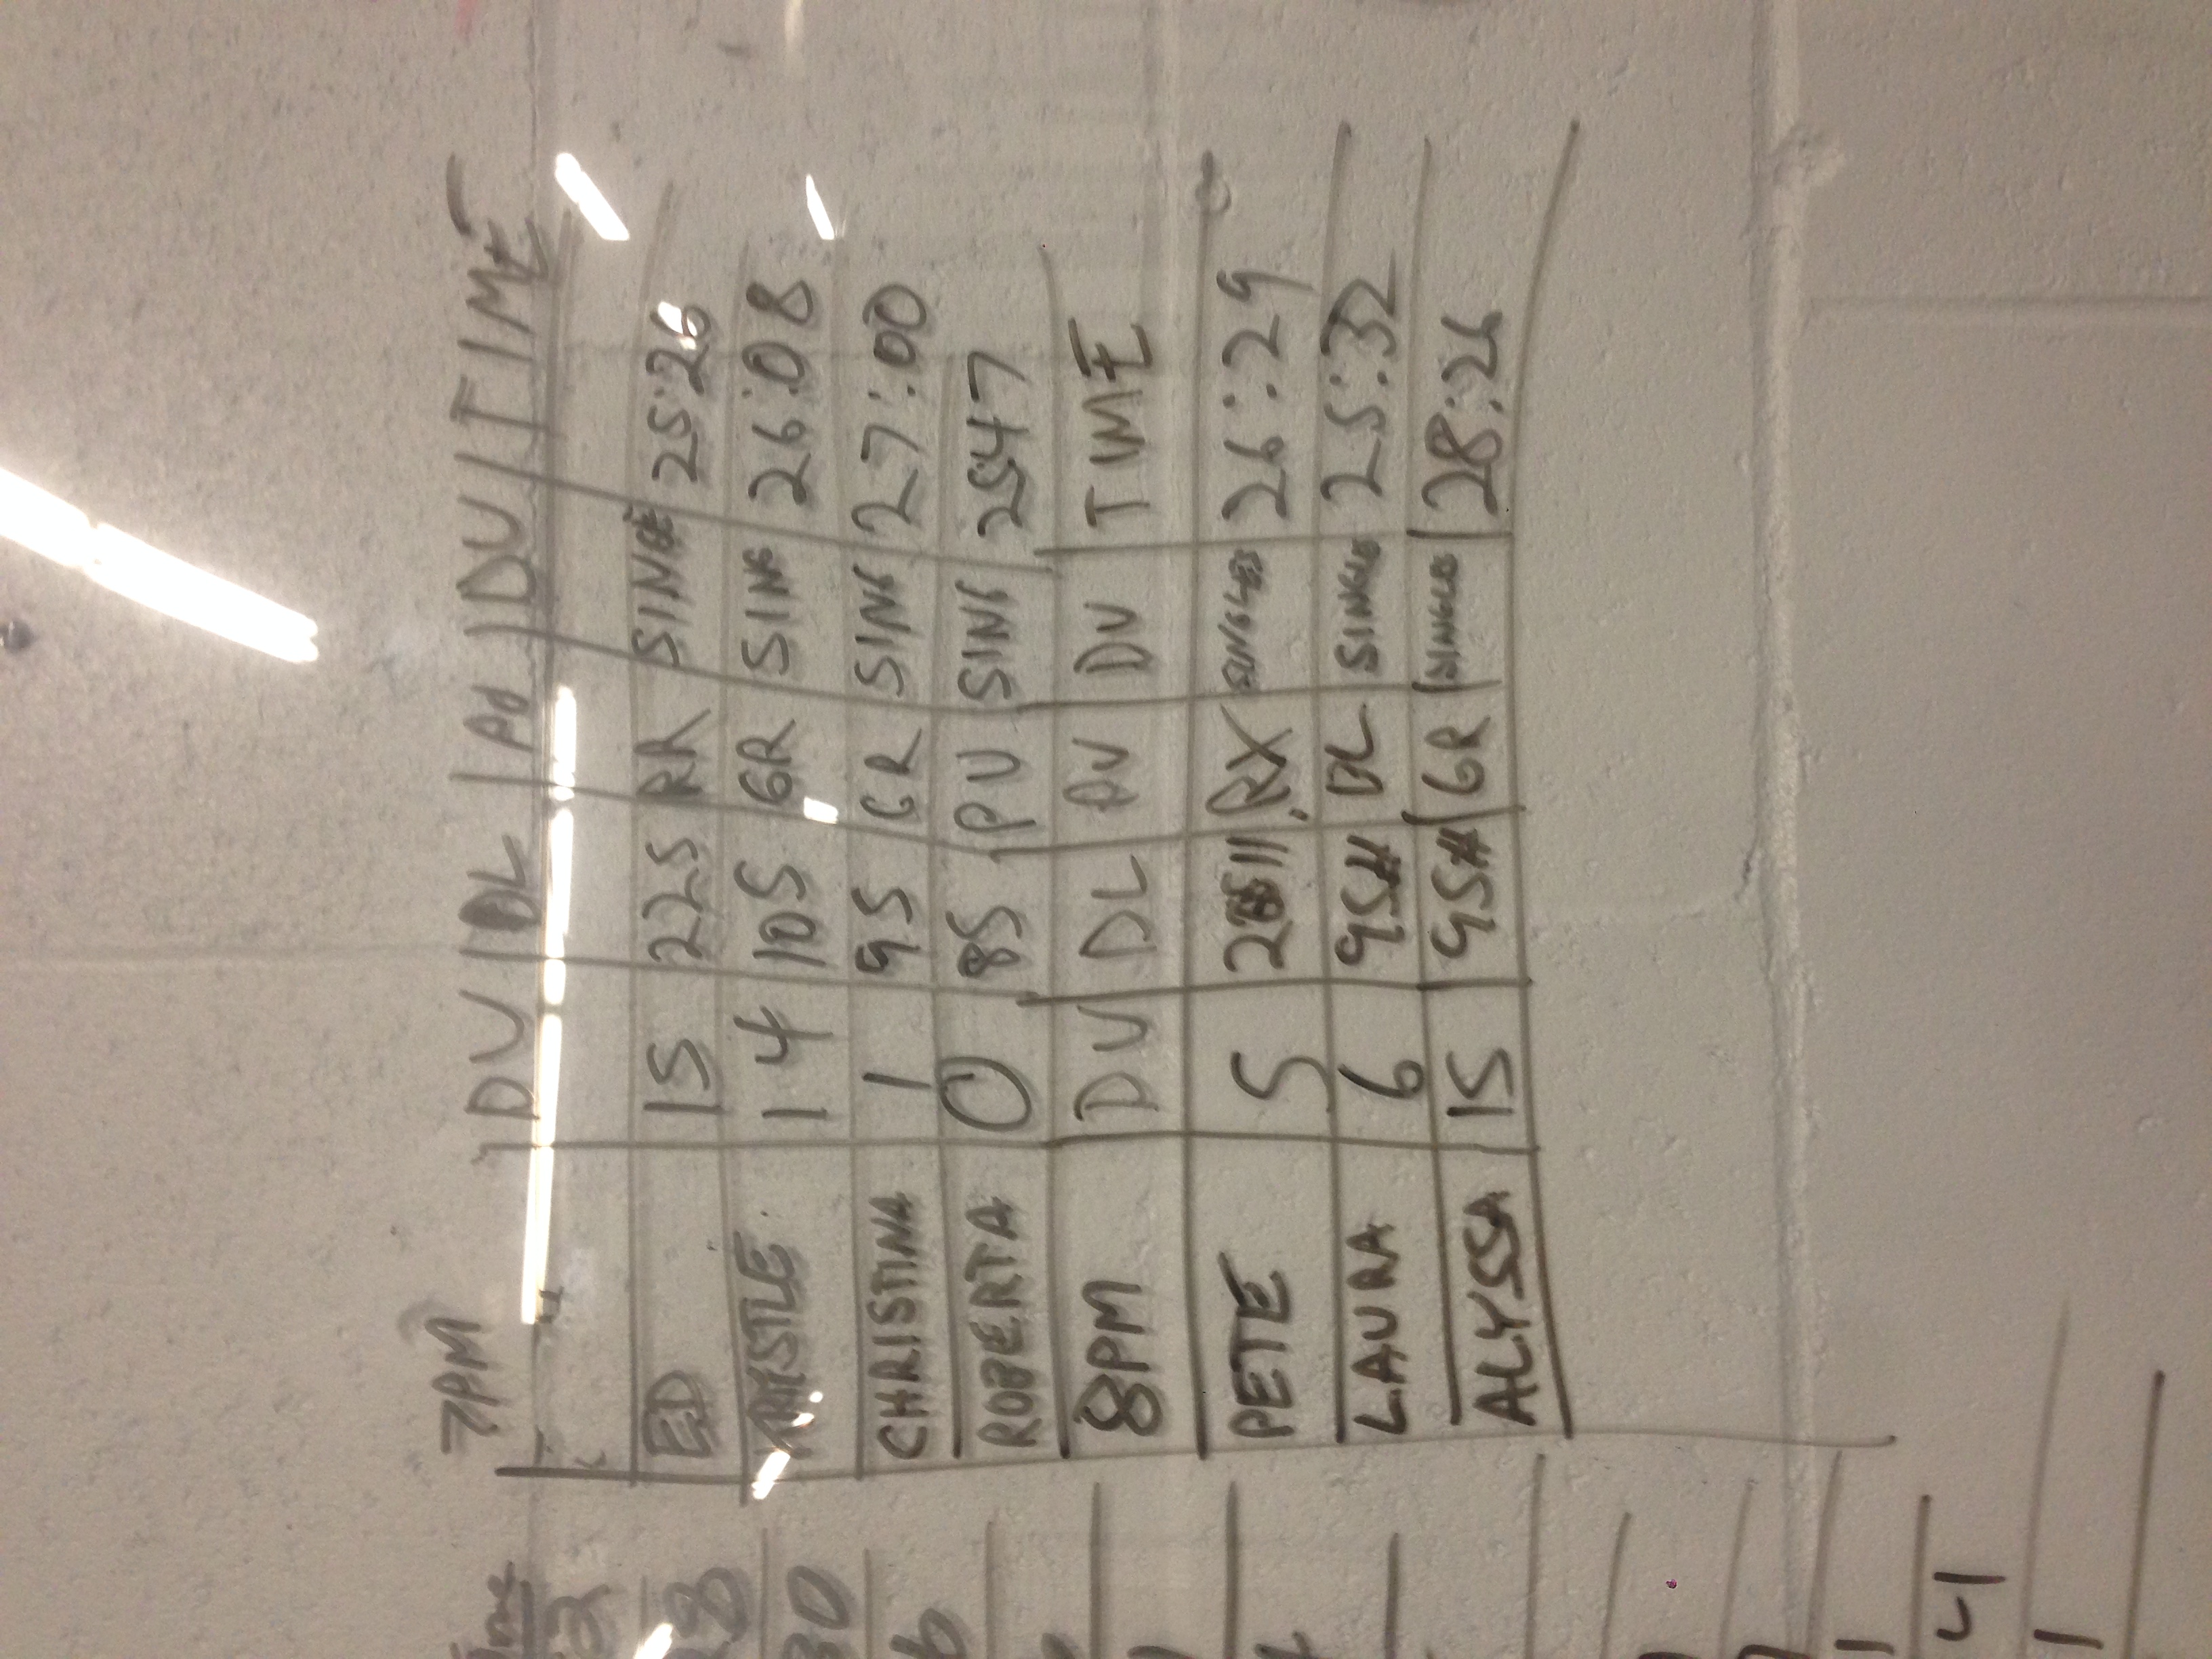 7PM DU DL PU DU TIME
ED 15 225 RR SING 25:26
KRYSTLE 14 105 GR SING 26:08
CHRISTINA 1 95 GR SING 27:00
ROBERTA 0 85 PU SING 25:47
8PM DU DL PU DU TIME
PETE 5 RX SINGLES 26:29
LAURA 6 95# BL SINGLE 25:32
ALYSSA 15 95# GR SINGLE 28:26